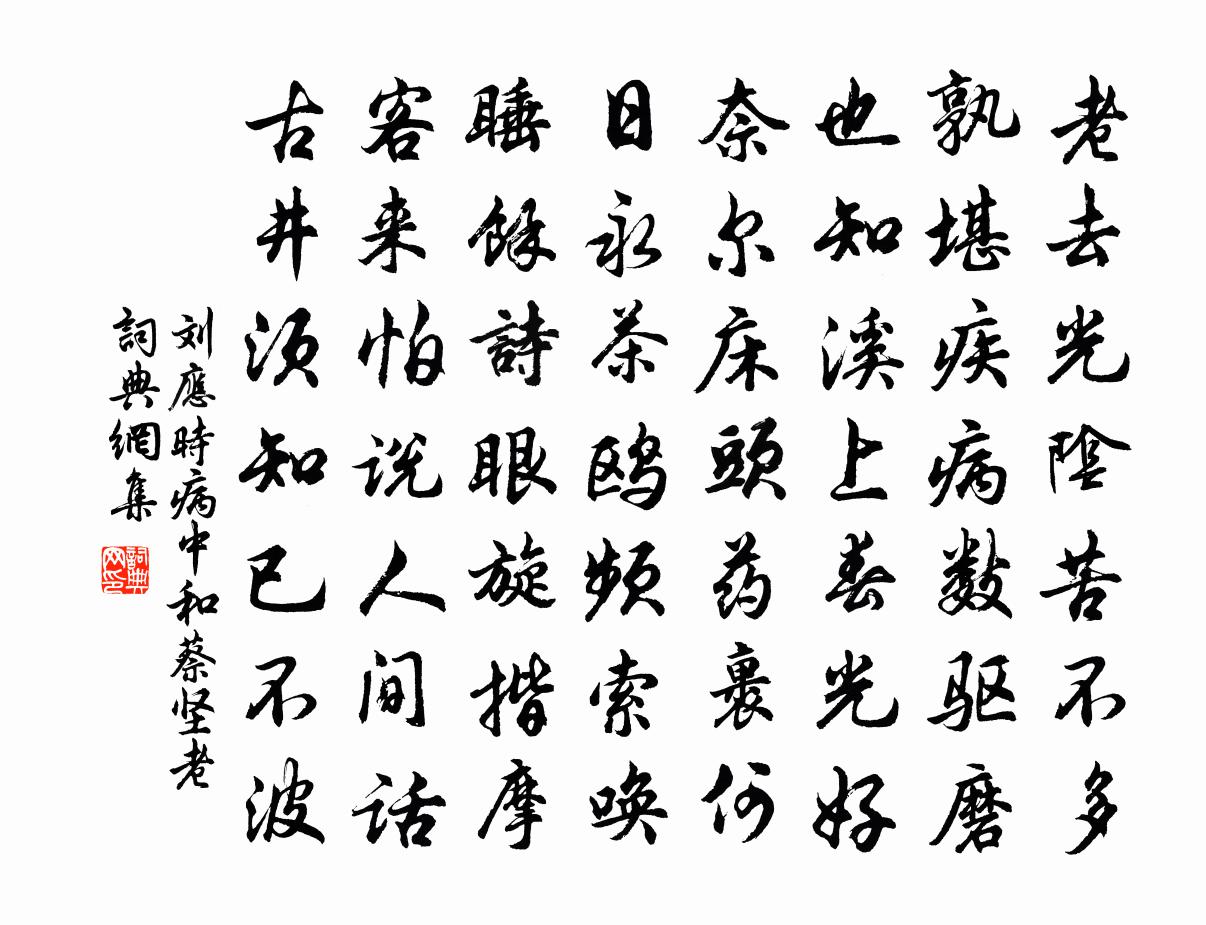 老去光陰苦不多
孰堪疾病数驱磨
也知溪上春光好
奈尔床頭药裹何
日永茶鸥频索唤
睡餘詩眼旋揩摩
客来怕说人间话
古井须知已不波
刘應時病中和蔡坚老
詞典網集
詞典網印